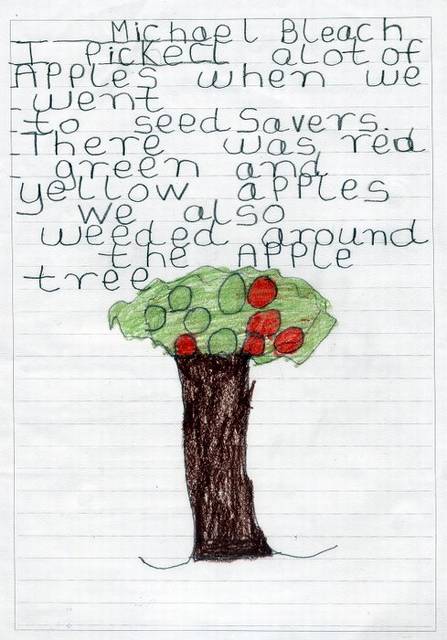 Michael Bleach
I picked alot of
Apples when we
went
to seedSavers.
There was red
green and
yellow apples
we also
weeded around
the APPle
tree